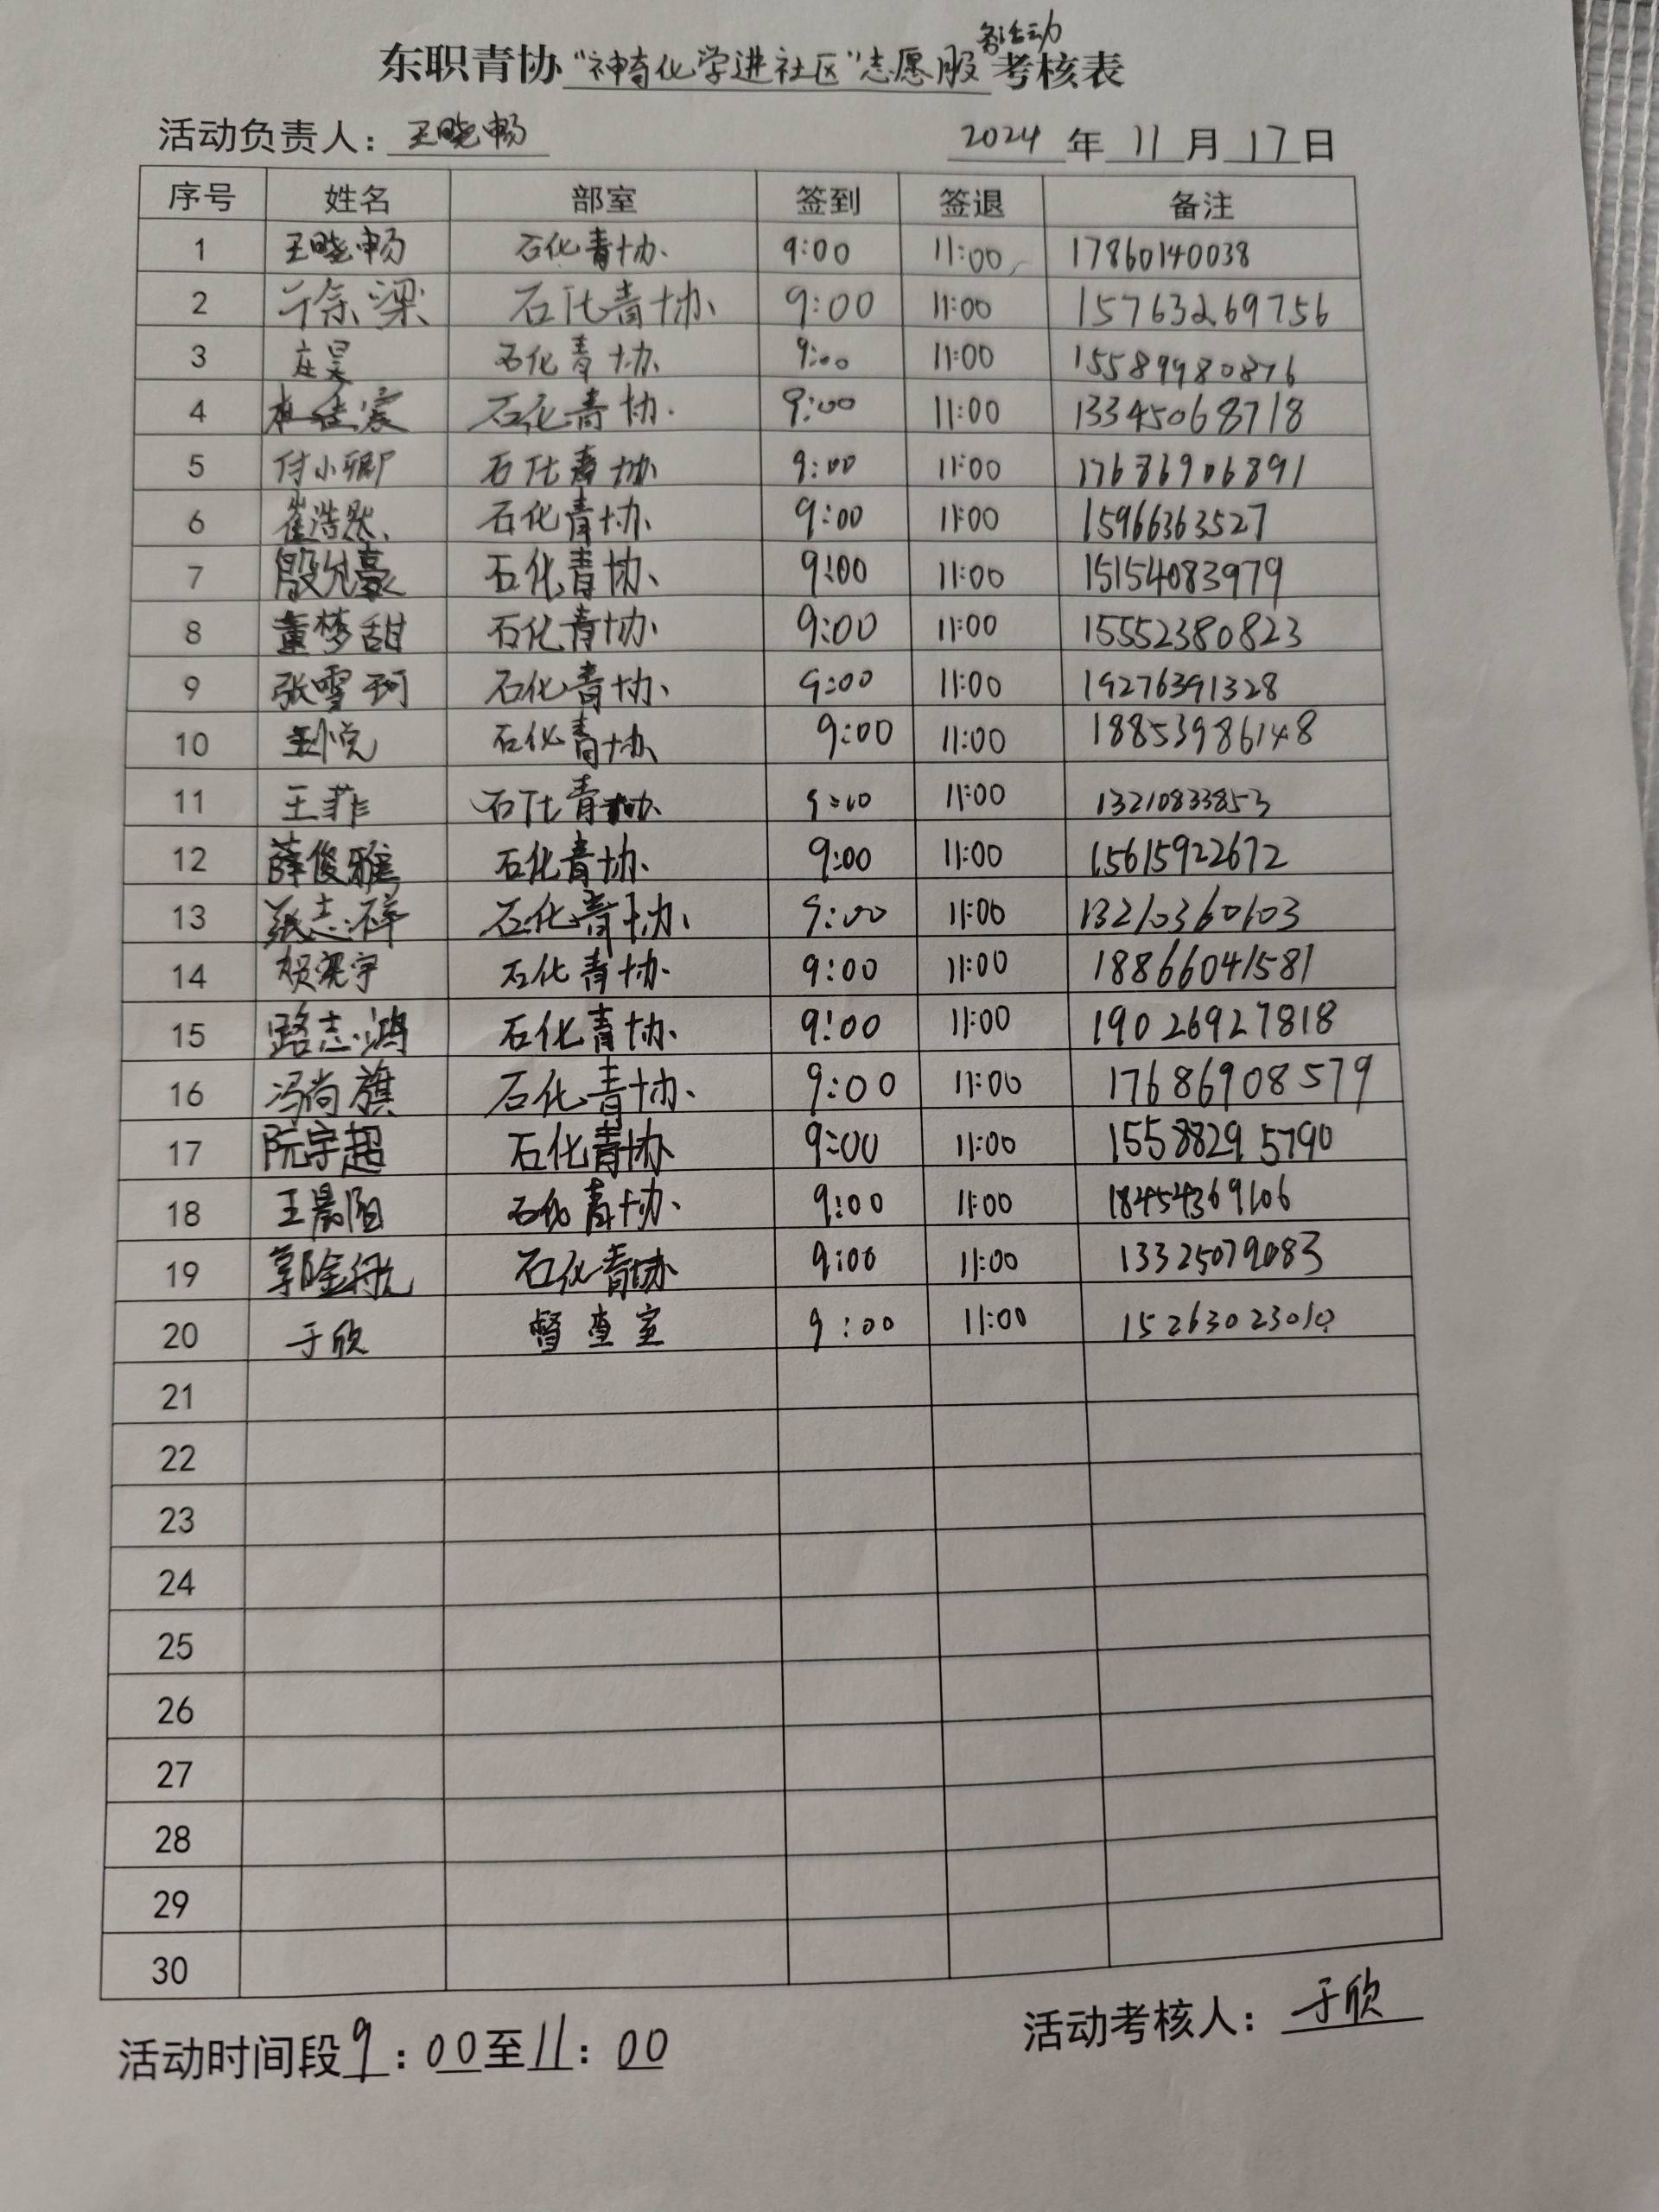 务活动
东职青协“神奇化学进社区”志愿服考核表
活动负责人：王晓畅 2024年11月17日
序号 姓名 部室 签到 签退 备注
1 王晓畅 石化青协 9:00 11:00 17860140038
2 石化青协 9:00 11:00 15763269756
3 庄昊 石化青协 9:00 11:00 15589980876
4 石化青协 9:00 11:00 13345068718
5 付小卿 石化青协 9:00 11:00 17686906891
6 崔浩然 石化青协 9:00 11:00 15966363527
7 殷允豪 石化青协 9:00 11:00 15154083979
8 董梦甜 石化青协 9:00 11:00 15552380823
9 张雪珂 石化青协 9:00 11:00 19276391328
10 石化青协 9:00 11:00 18853986148
11 王菲 石化青协 9:00 11:00 13210833853
12 薛俊雅 石化青协 9:00 11:00 15615922672
13 张志梓 石化青协 9:00 11:00 13210360603
14 石化青协 9:00 11:00 18866041581
15 路志鸿 石化青协 9:00 11:00 19026927818
16 冯尚旗 石化青协 9:00 11:00 17686908579
17 阮宇超 石化青协 9:00 11:00 15588295790
18 王晨阳 石化青协 9:00 11:00 18454369106
19 郭金航 石化青协 9:00 11:00 13325079083
20 于欣 督查室 9:00 11:00
21
22
23
24
25
26
27
28
29
30
活动时间段9：00至11：00 活动考核人：于欣